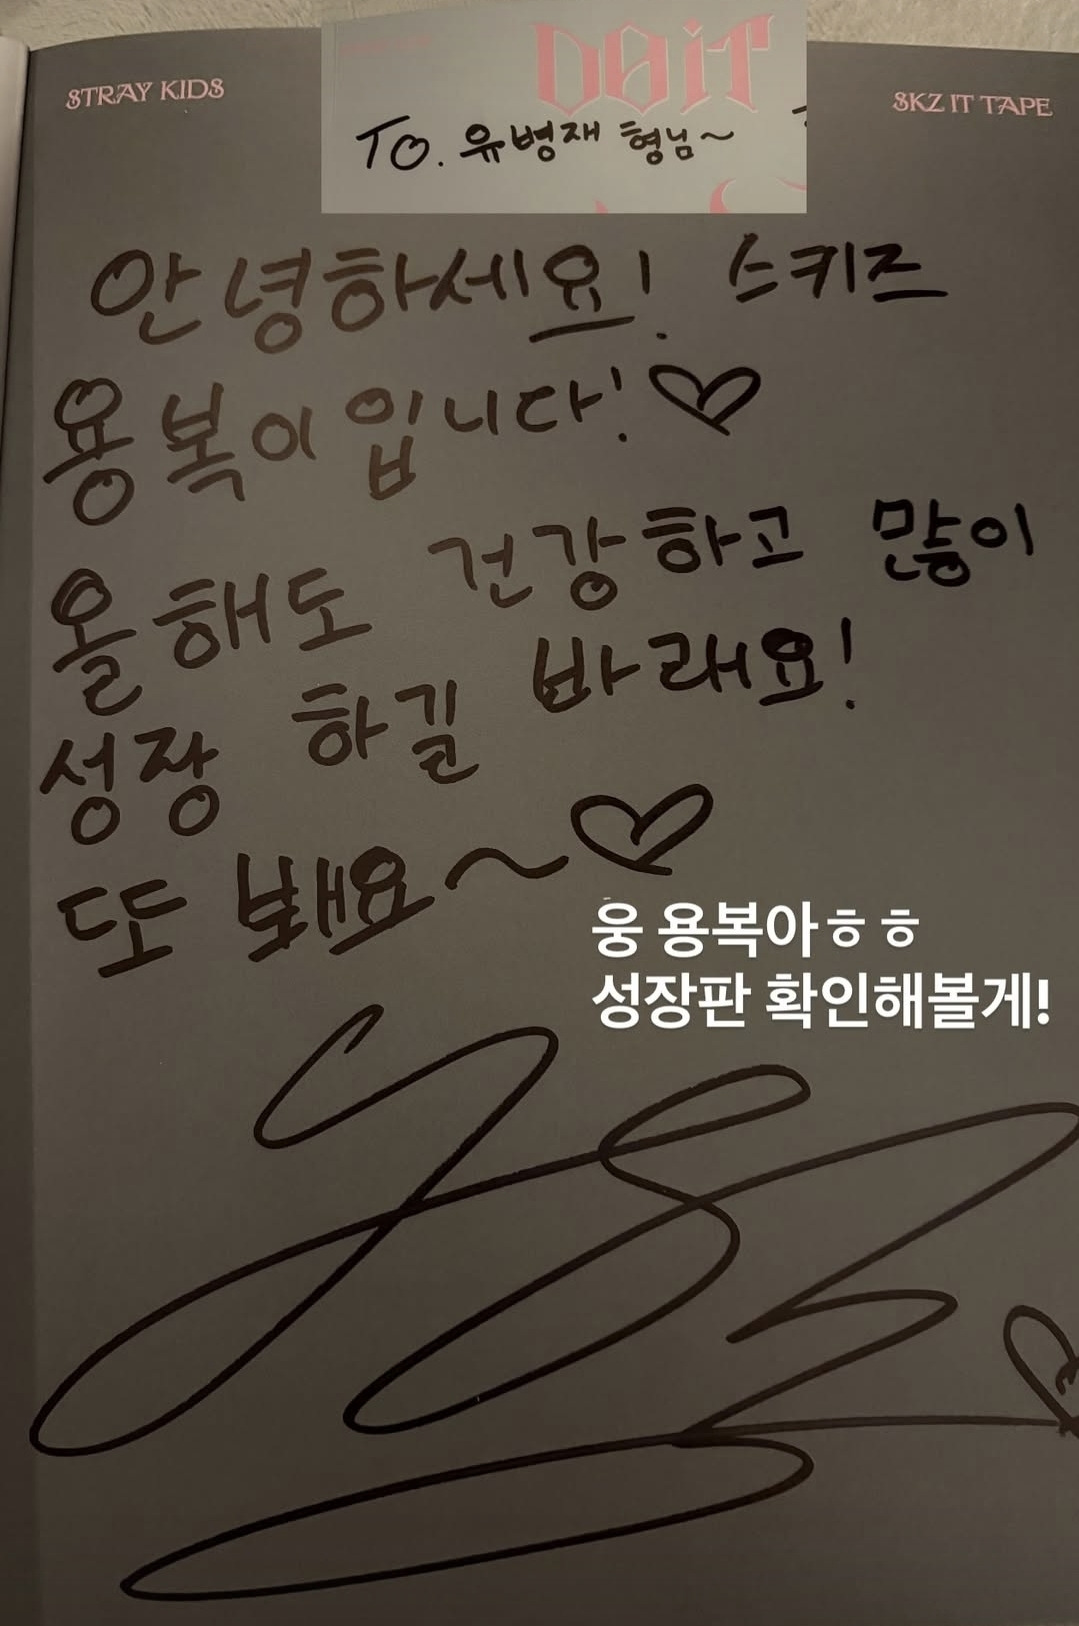 STRAY KIDS
DO IT
SKZ IT TAPE
TO. 유병재 형님~
안녕하세요! 스키즈
용복이입니다!♡
올해도 건강하고 많이
성장 하길 바래요!
또 봬요~♡
웅 용복아ㅎㅎ
성장판 확인해볼게!